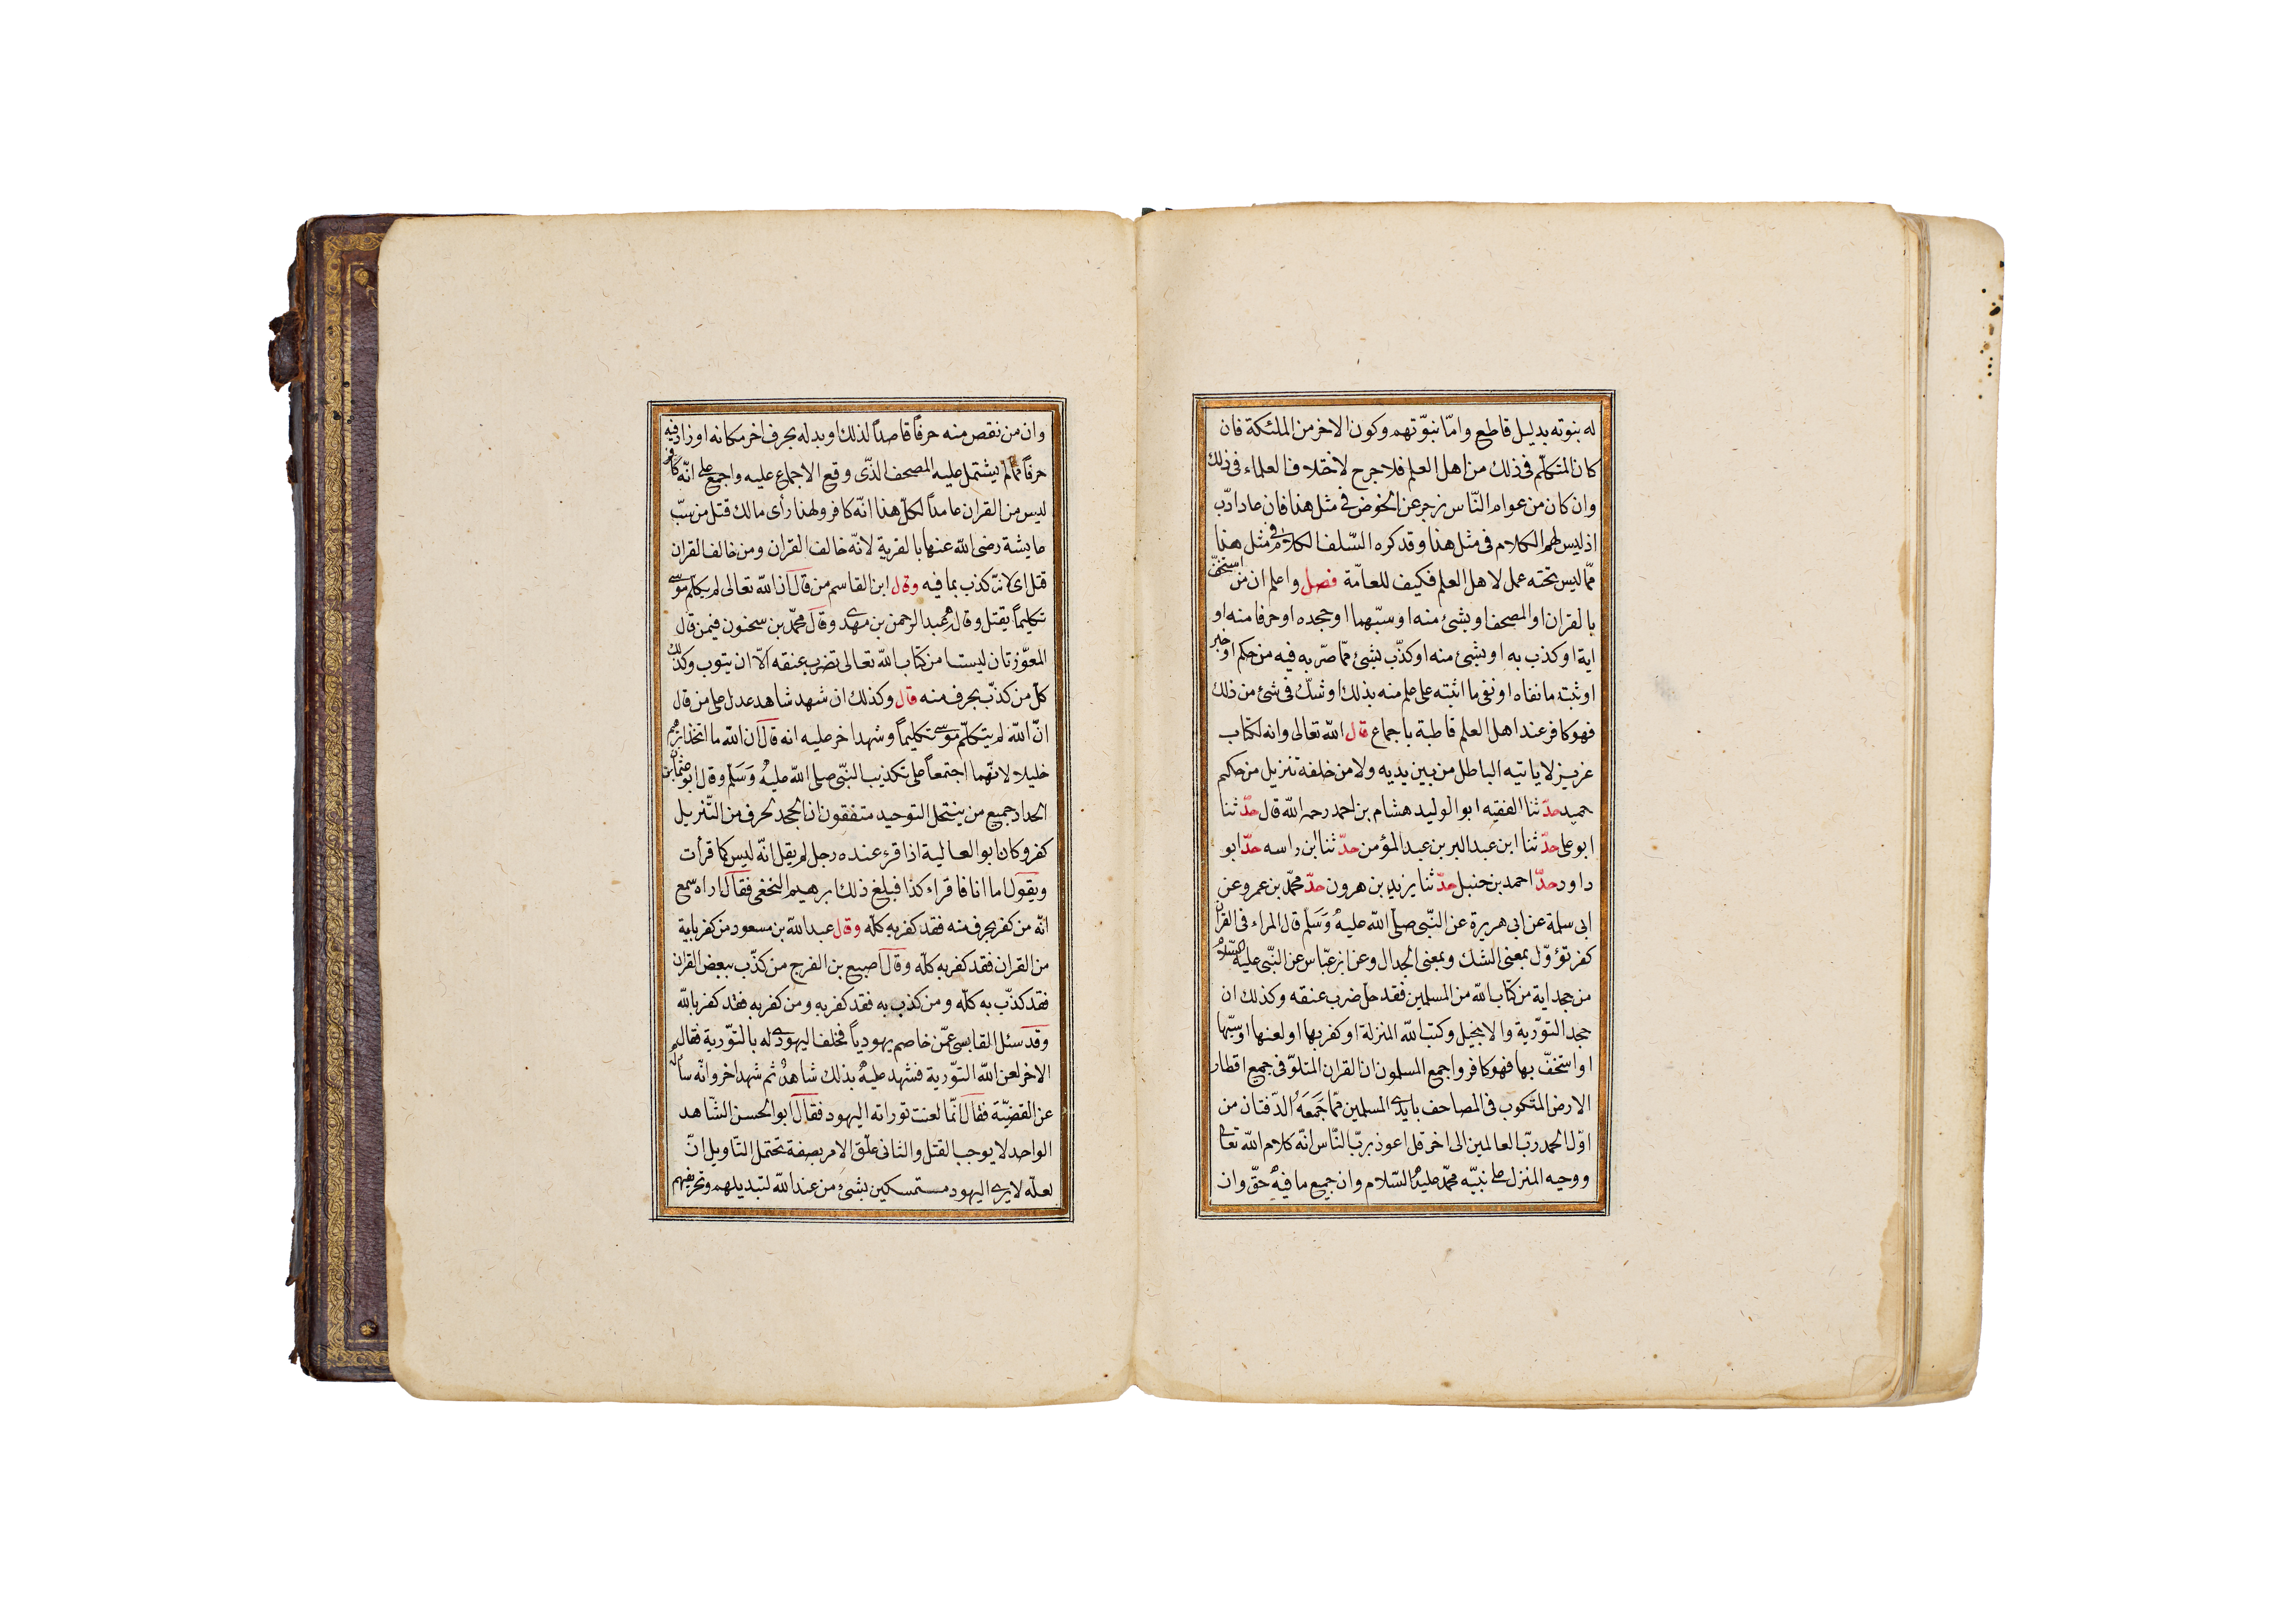 له بنوته بدليل قاطع وامّا نبوّتهم وكون الاخر من الملئكة فان
كان المتكلّم فى ذلك من اهل العلم فلا جرح لاختلاف العلماء فى ذلك
وان كان من عوام النّاس زجر عن الخوض فى مثل هذا فان عاد ادّب
اذ ليس لهم الكلام فى مثل هذا وقد كره السّلف الكلام فى مثل هذا
ممّا ليس تحته عمل لاهل العلم فكيف للعامّة فصل واعلم ان من استخفّ
بالقران او المصحف او بشئ منه او سبّهما او جحده او حرفا منه او
اية او كذب به او بشئ منه او كذّب بشئ ممّا صرّح به فيه من حكم او خبر
او ثبته ما نفاه او نفى ما اثبته على علم منه بذلك او شكّ فى شئ من ذلك
فهو كافر عند اهل العلم قاطبة باجماع قال الله تعالى وانه لكتاب
عزيز لا ياتيه الباطل من بين يديه ولا من خلفه تنزيل من حكيم
حميد حدّثنا الفقيه ابو الوليد هشام بن احمد رحمه الله قال حدّثنا
ابو على حدّثنا ابن عبد البر بن عبد المؤمن حدّثنا ابن راسه حدّ ابو
داود حدّ احمد بن حنبل حدّثنا يزيد بن هرون حدّ محمّد بن عمرو عن
ابى سلمة عن ابى هريرة عن النّبى صلى الله عليه وسلم قال المراء فى القران
كفر تؤوّل بمعنى الشك وبمعنى الجدال وعن ابن عبّاس عن النّبى عليه السلام
من جحد اية من كتاب الله من المسلمين فقد حلّ ضرب عنقه وكذلك ان
جحد التورية والانجيل وكتب الله المنزلة او كفر بها او لعنها او سبّها
او استخفّ بها فهو كافر واجمع المسلمون ان القران المتلوّ فى جميع اقطار
الارض المكتوب فى المصاحف بايدى المسلمين ممّا جَمَعَهُ الدّفتان من
اوّل الحمد ربّ العالمين الى اخر قل اعوذ بربّ النّاس انّه كلام الله تعالى
ووحيه المنزل على نبيّه محمّد عليه السّلام وان جميع ما فيه حقّ وان
وان من نقص منه حرفاً قاصداً لذلك او بدله بحرف اخر مكانه او زاد فيه
حرفاً ممّا لم يشتمل عليه المصحف الذّى وقع الاجماع عليه واجمع على انّه كافر
ليس من القران عامداً لكلّ هذا انّه كافر ولهذا رأى مالك قتل من سبّ
عايشة رضى الله عنها بالفرية لانّه خالف القران ومن خالف القران
قتل اى لانّه كذب بما فيه وقال ابن القاسم من قال ان الله تعالى لم يكلّم موسى
تكليماً يقتل وقاله عبد الرحمن بن مهدى وقال محمّد بن سحنون فيمن قال
المعوّذتان ليستا من كتاب الله تعالى تضرب عنقه الّا ان يتوب وكذلك
كلّ من كذّب بحرف منه قال وكذلك ان شهد شاهد عدل على من قال
انّ الله لم يتكلّم موسى تكليماً وشهد اخر عليه انه قال ان الله ما اتخذ ابرهيم
خليلا لانّهما اجتمعا على تكذيب النّبى صلى الله عليه وَسَلم وقال ابو عثمان بن
الحداد جميع من ينتحل التوحيد متفقون ان الجحد لحرف من التّنزيل
كفر وكان ابو العالية اذا قرء عنده رجل لم يقل انّه ليس كما قرأت
ويقول اما انا فاقراء كذا فبلغ ذلك ابرهيم النخعى فقال اراه سمع
انّه من كفر بحرف منه فقد كفر به كلّه وقال عبد الله بن مسعود من كفر باية
من القران فقد كفر به كلّه وقال اصبيع بن الفرج من كذّب ببعض القران
فقد كذّب به كلّه ومن كذب به فقد كفر به ومن كفر به فقد كفر بالله
وقد سئل القابسى عمّن خاصم يهودياً فحلف اليهودى له بالتّورية فقال له
الاخر لعن الله التّورية فشهد عليه بذلك شاهدٌ ثم شهد اخر وانّه ساله
عن القضيّة فقال انّما لعنت توراته اليهود فقال ابو الحسن الشّاهد
الواحد لا يوجب القتل والثانى علّق الامر بصفة تحتمل التّاويل انّ
لعلّه لا يرى اليهود مستمسكين بشئ من عند الله لتبديلهم وتحريفهم